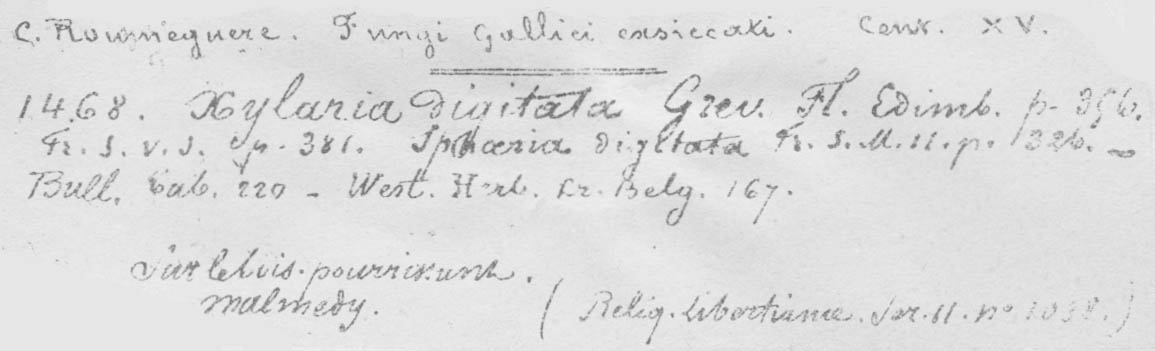 C. Roumeguere. Fungi Gallici exsiccati. Cent. XV.
1468. Xylaria digitata Grev. Fl. Edimb. p. 356.
Fr. S. v. S. p. 381. Sphæria digitata Fr. S. M. 11. p. 326. _
Bull. tab. 220 _ West. Herb. Cr. Belg. 167.
Sur le bois pourrissant.
Malmedy. (Reliq. Libertianæ. Ser. 11. no 1038.)